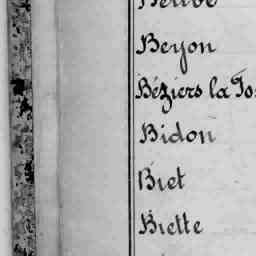 Beyon
Béziers la
Bidon
Biet
Biette